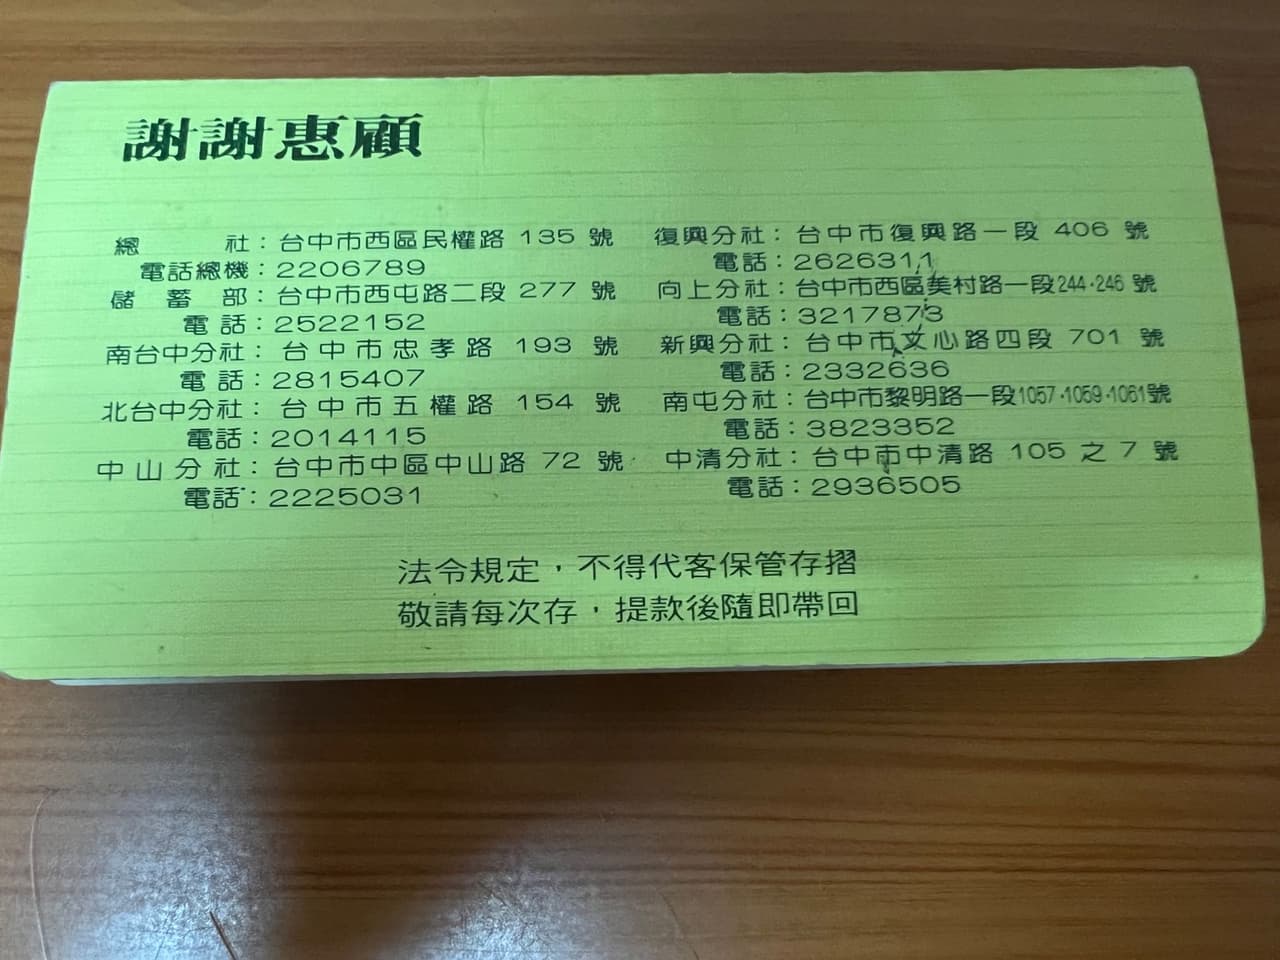 謝謝惠顧
總社：台中市西區民權路 135 號
電話總機：2206789
儲蓄部：台中市西屯路二段 277 號
電話：2522152
南台中分社：台中市忠孝路 193 號
電話：2815407
北台中分社：台中市五權路 154 號
電話：2014115
中山分社：台中市中區中山路 72 號
電話：2225031
復興分社：台中市復興路一段 406 號
電話：2626311
向上分社：台中市西區美村路一段244·246 號
電話：3217873
新興分社：台中市文心路四段 701 號
電話：2332636
南屯分社：台中市黎明路一段1057·1059·1061號
電話：3823352
中清分社：台中市中清路 105 之 7 號
電話：2936505
法令規定，不得代客保管存摺
敬請每次存，提款後隨即帶回